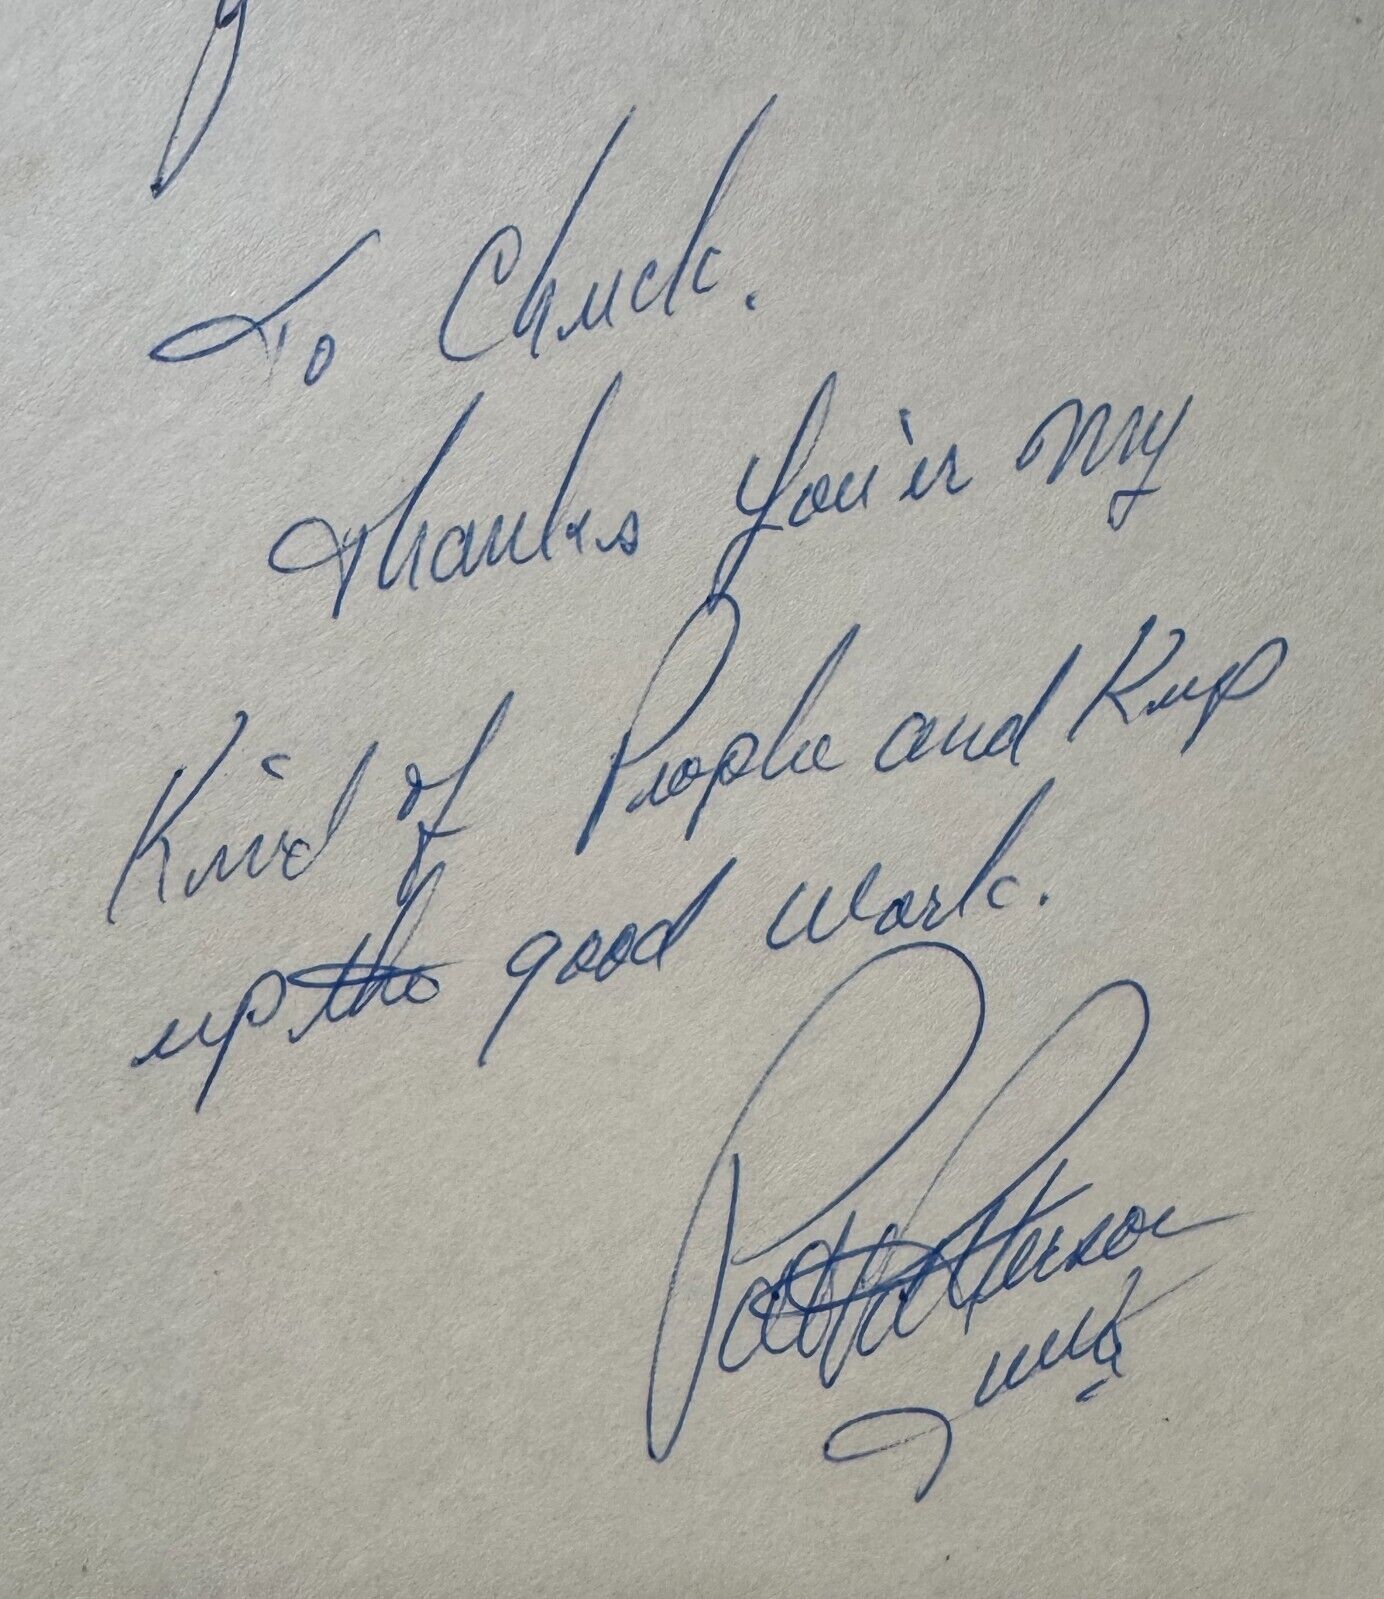 To Chuck.
Thanks You'er My
Kind of People and Keep
up the good work.
Pat Patterson